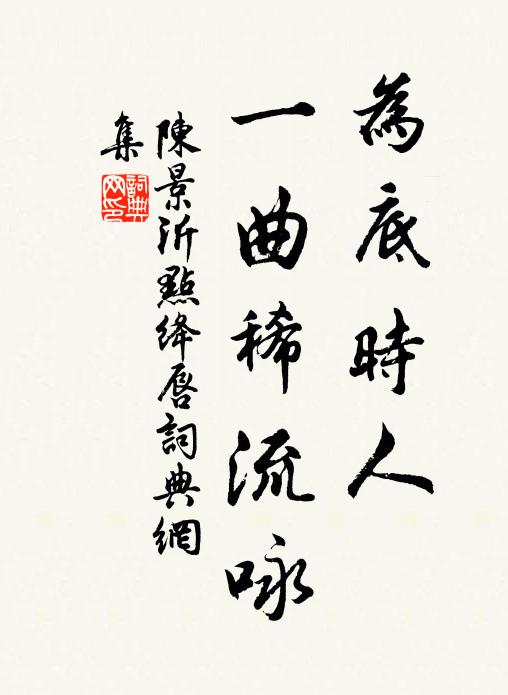 為底時人
一曲稀流咏
陳景沂點絳唇詞典網
集
詞典
网印